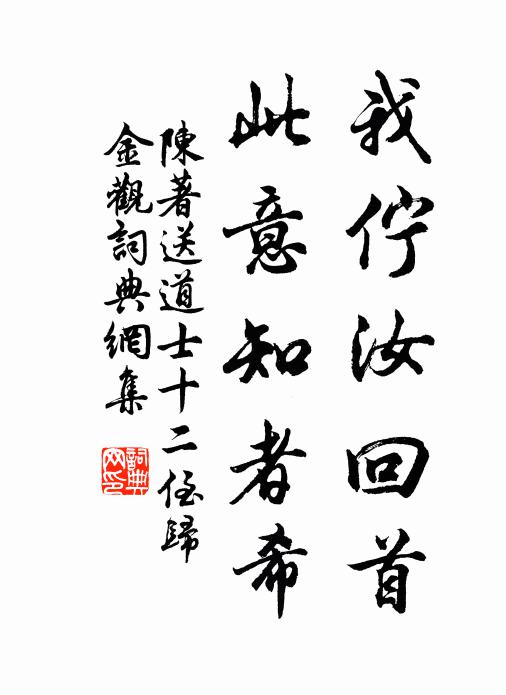 我佇汝回首
此意知者希
陳著送道士十二侄歸
金觀詞典網集
詞典网印